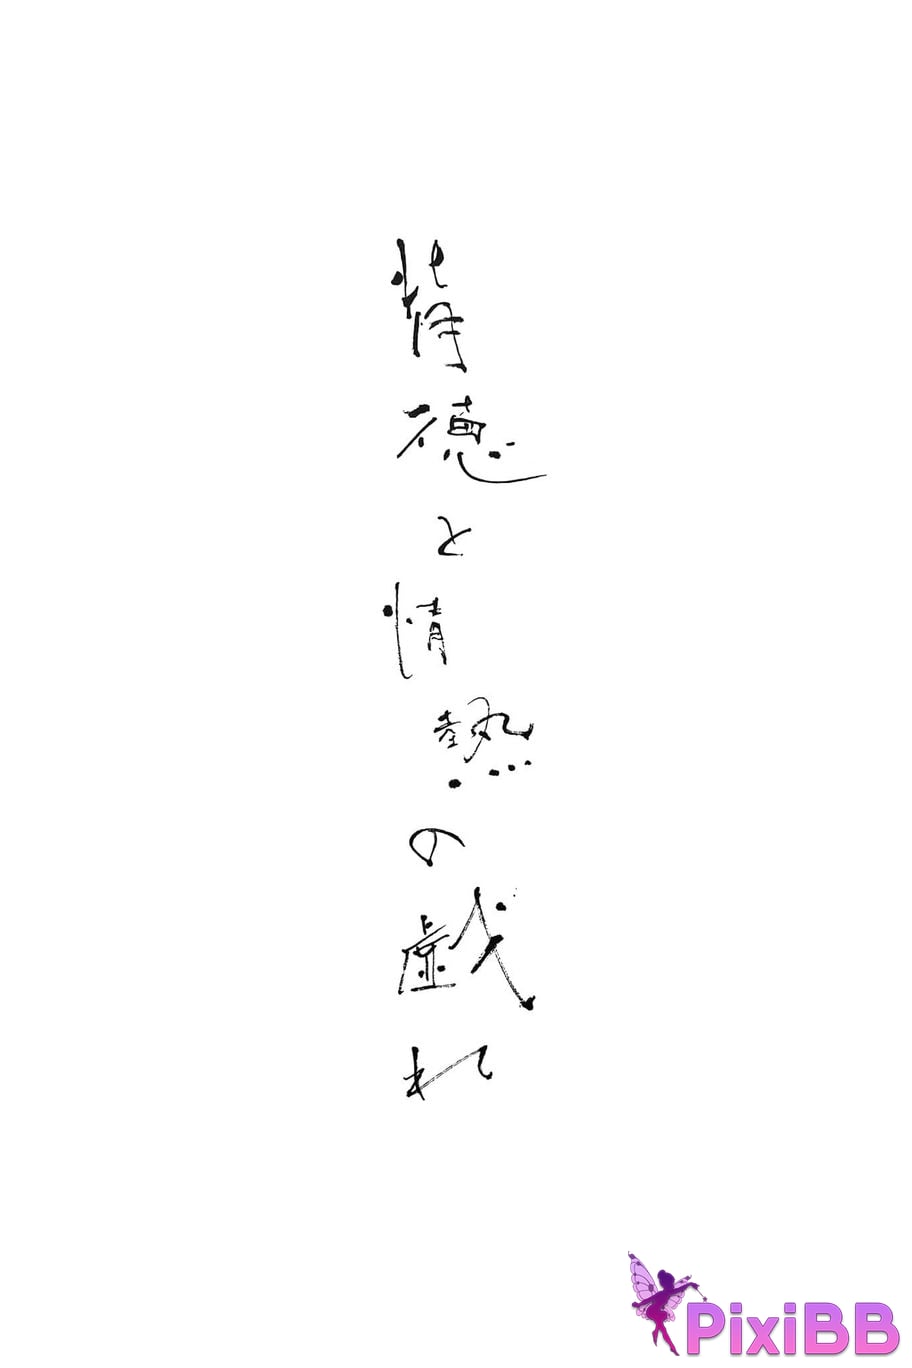 背徳と情熱の戯れ
PixiBB